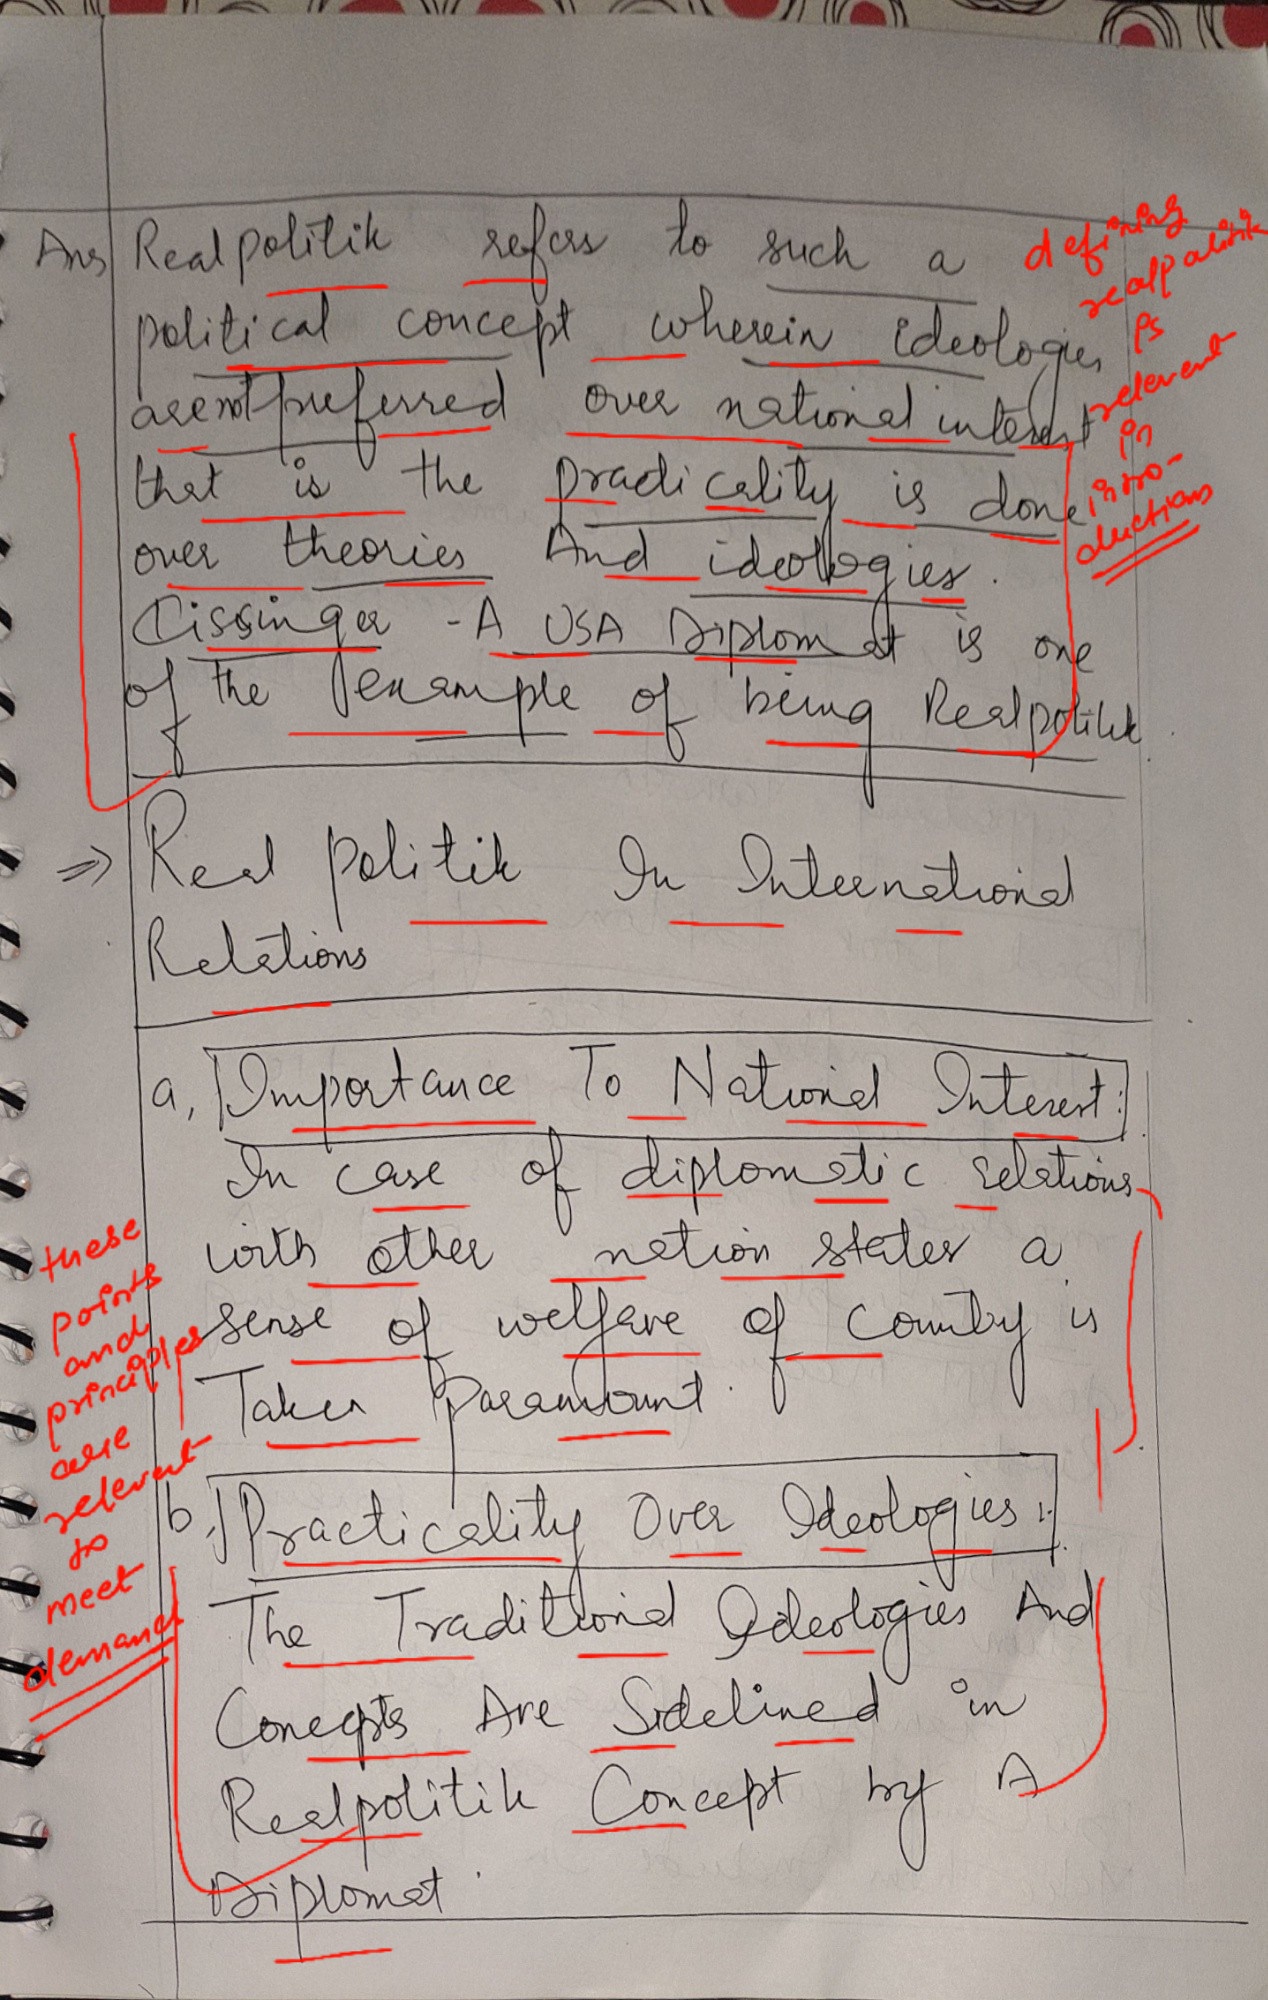 Ans Realpolitik refers to such a
political concept wherein ideologies
are not preferred over national interest
that is the practicality is done
over theories And ideologies.
Cissinger - A USA Diplomat is one
of the example of being Realpolitik.
defining
realpolitik
is
relevent
in
intro-
ductions
⇒ Real politik In International
Relations
a, Importance To National Interest:
In case of diplomatic relations
with other nation states a
sense of welfare of Country is
Taken Paramount.
these
points
and
principles
are
relevent
to
meet
demand
b, Practicality Over Ideologies:
The Traditional Ideologies And
Concepts Are Sidelined in
Realpolitik Concept by A
Diplomat.